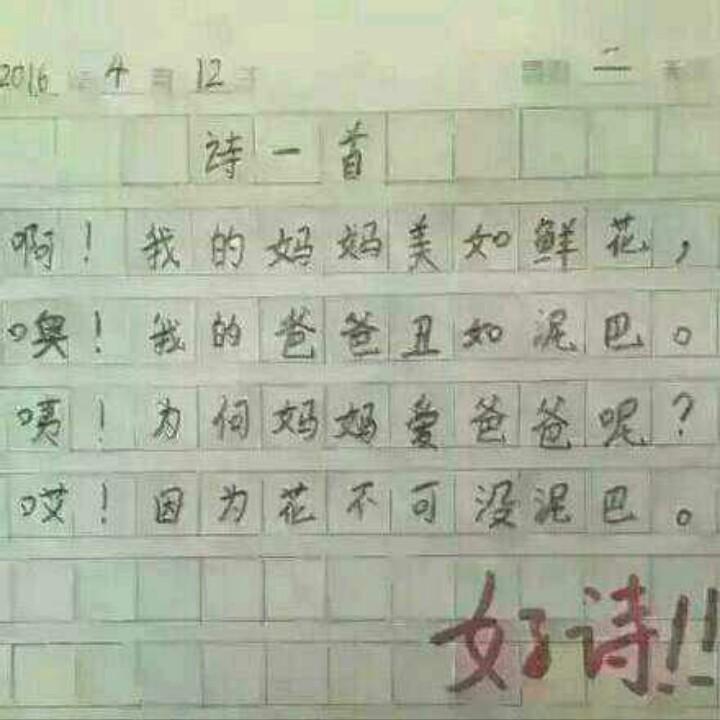 2016年4月12日 星期二 天气
诗一首
啊！我的妈妈美如鲜花，
噢！我的爸爸丑如泥巴。
咦！为何妈妈爱爸爸呢？
哎！因为花不可没泥巴。
好诗!!